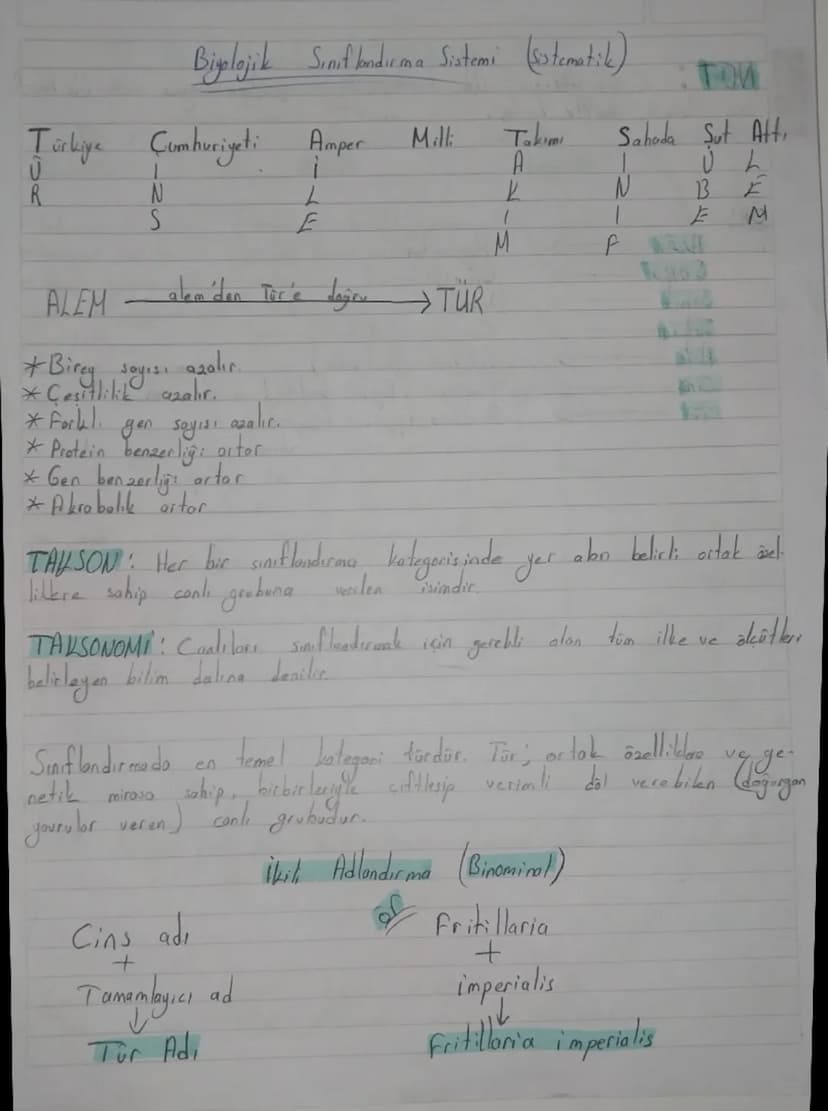 Biyolojik Sınıflandırma Sistemi (sistematik)
Türkiye Cumhuriyeti Amper Milli Takımı Sahada Şut Attı
Ü İ İ A I U L
R N L K N B E
S E I I E M
M F
ALEM alem'den Tür'e doğru → TÜR
* Birey sayısı azalır.
* Çeşitlilik azalır.
* Farklı gen sayısı azalır.
* Protein benzerliği artar
* Gen benzerliği artar
* Akrabalık artar
TAKSON: Her bir sınıflandırma kategorisinde yer alan belirli ortak özel-
liklere sahip canlı grubuna verilen isimdir.
TAKSONOMİ: Canlıları sınıflandırmak için gerekli olan tüm ilke ve ölçütleri
belirleyen bilim dalına denilir.
Sınıflandırmada en temel kategori türdür. Tür; ortak özelliklere ve ge-
netik mirasa sahip, birbirleriyle çiftleşip verimli döl verebilen (doğurgan
yavrular veren) canlı grubudur.
İkili Adlandırma (Binominal)
Cins adı
+
Tamamlayıcı ad
↓
Tür Adı
ör Fritillaria
+
imperialis
↓
Fritillaria imperialis